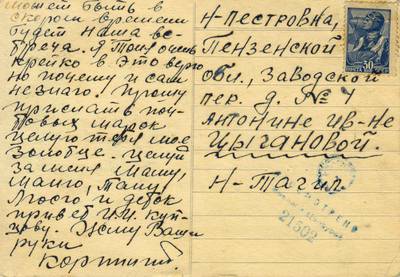 может быть в
скором времени
будет наша вс-
треча. Я Тоня очень
крепко в это верю
но почему и сам
не знаю. Прошу
прислать поч-
товых марок
целую тебя мое
золотце. целуй
за меня Машу,
Маню, Тату,
и деток
привет И.И. Куп-
цову. Жму Ваши
руки
Н-Пестровка,
Пензенской
обл., Заводской
пер. д. № 4
Антонине Ив-не
Цыгановой.
Н-Тагил.
30
СМОТРЕНО
21502